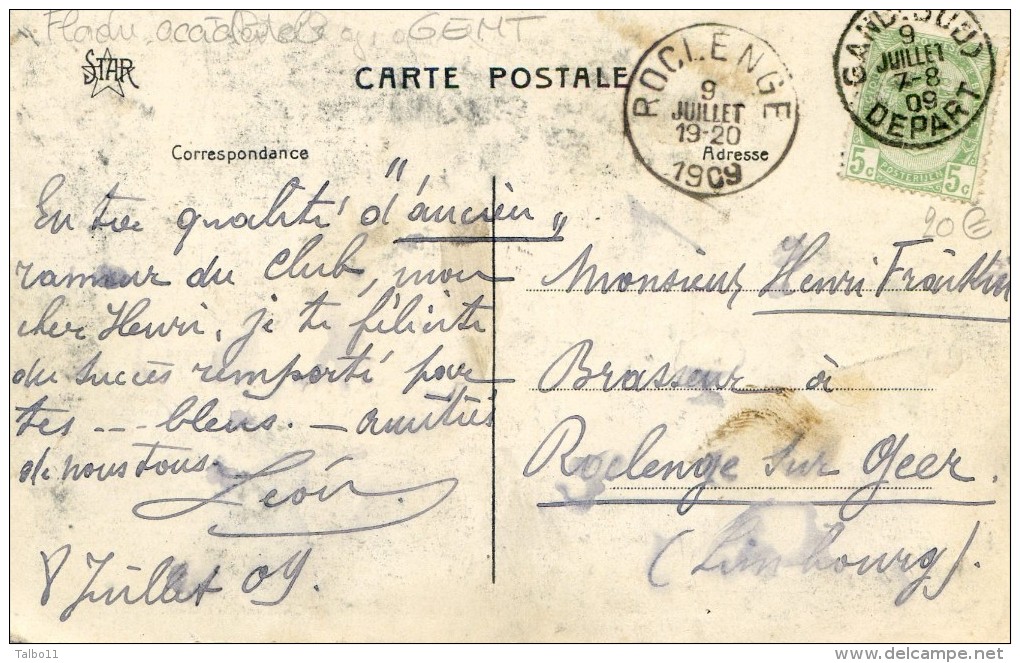 GENT
STAR
CARTE POSTALE
ROCLENGE
9
JUILLET
19-20
1909
GAND (SUD)
9
JUILLET
7-8
09
DEPART
5c POSTERIJEN 5c
Correspondance
Adresse
20€
En ta qualité d'"ancien"
rameur du club, mon
cher Henri, je te félicite
du succès remporté par
tes --- bleus. - amitiés
de nous tous.
Léon.
8 Juillet 09.
Monsieur Henri Franklin
Brasseur à
Roclenge sur Geer.
(Limbourg).
Talbo11
delcampe.net